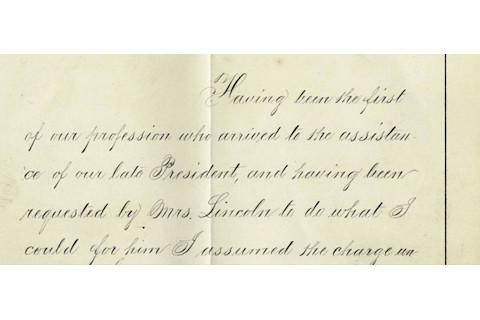 Having been the first
of our profession who arrived to the assistan-
ce of our late President, and having been
requested by Mrs. Lincoln to do what I
could for him I assumed the charge un-